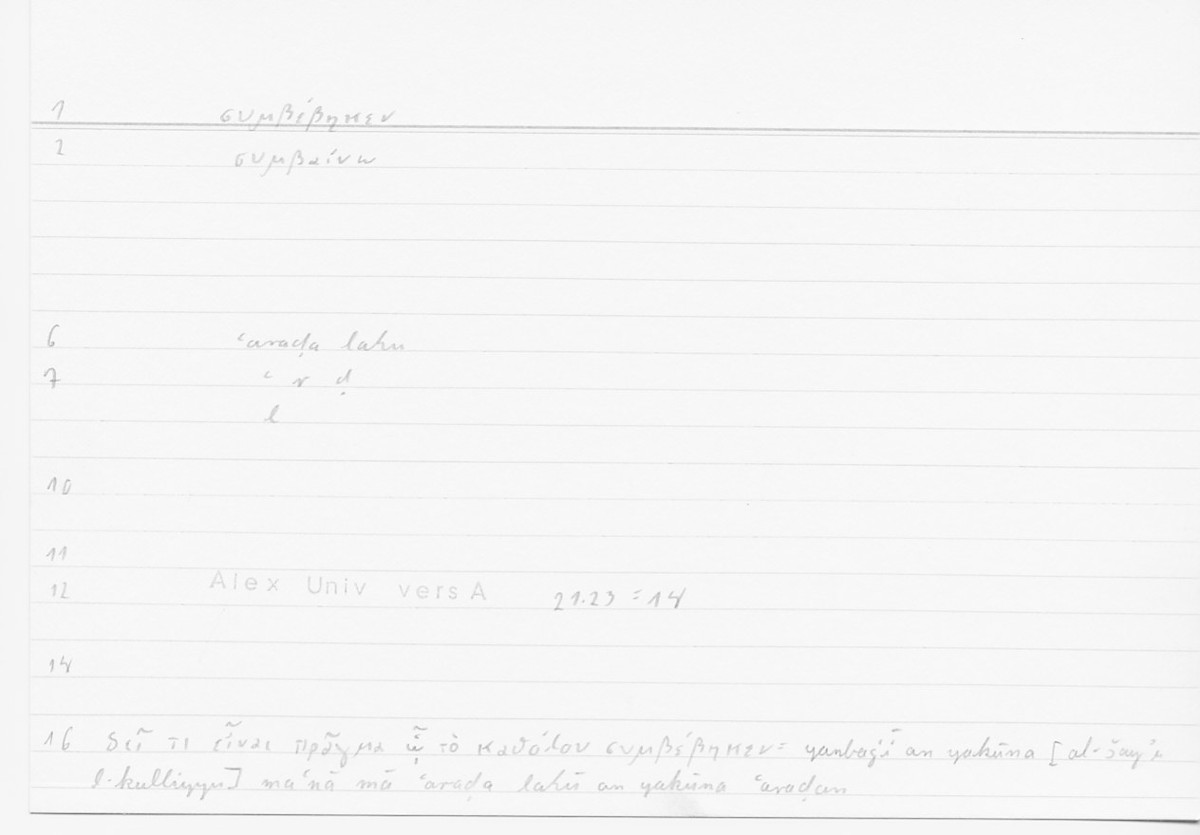 1 συμβέβηκεν
2 συμβαίνω
6 ʿaraḍa lahu
7 ʿ r ḍ
l
10
11
12 Alex Univ vers A 21.23 = 14
14
16 δεῖ τι εἶναι πρᾶγμα ᾧ τὸ καθόλου συμβέβηκεν = yanbaġī an yakūna [al-šayʾu
l-kulliyyu] maʿnā mā ʿaraḍa lahū an yakūna ʿaraḍan